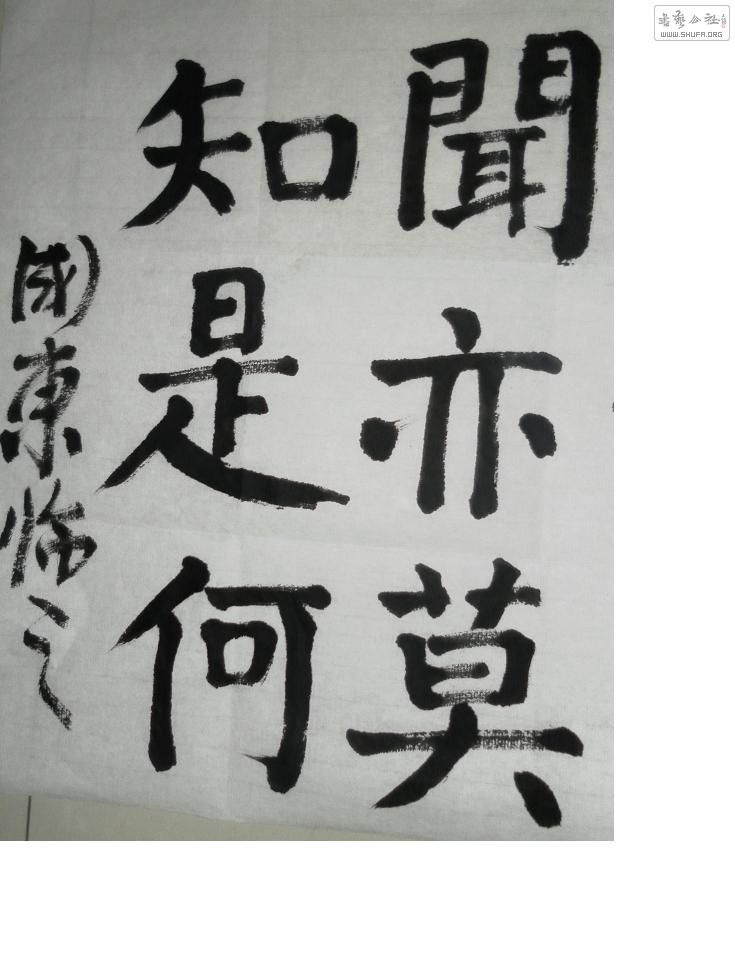 聞亦莫
知是何
國東临之
书艺公社
WWW.SHUFA.ORG